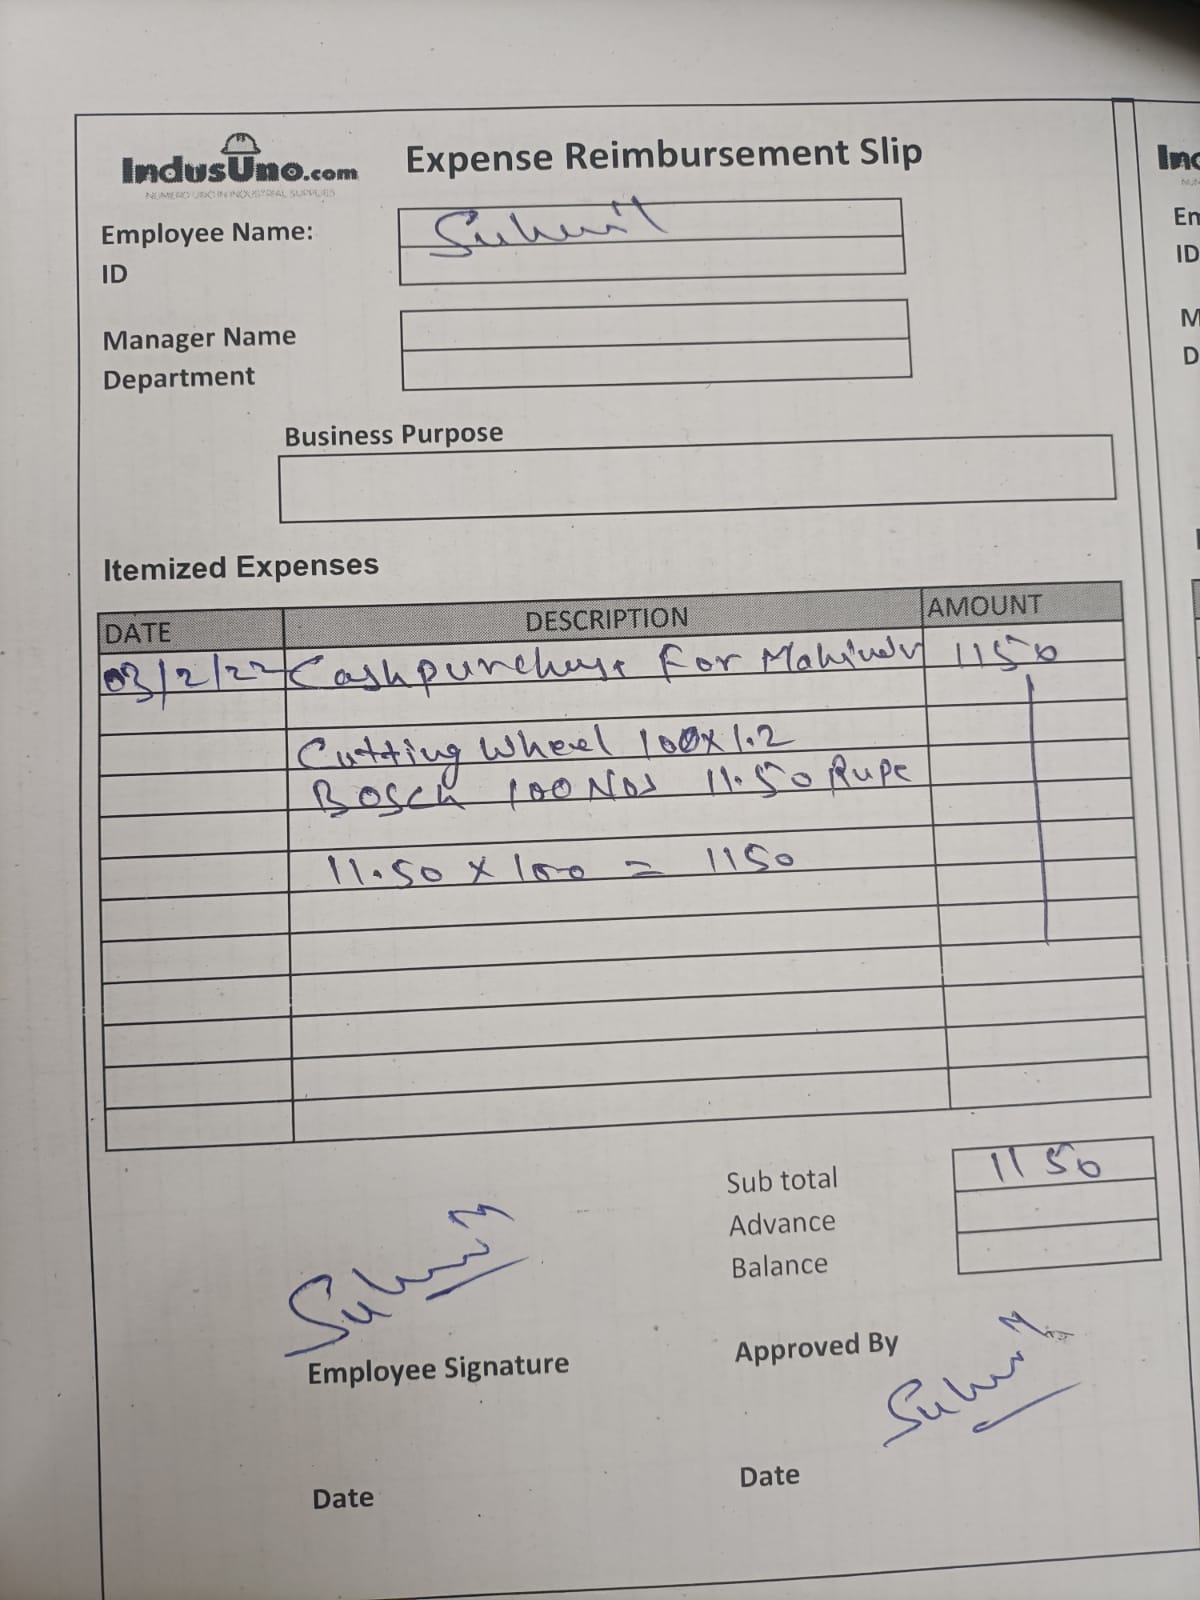 IndusUno.com
NUMERO UNO IN INDUSTRIAL SUPPLIES
Expense Reimbursement Slip
Employee Name:
ID
Manager Name
Department
Business Purpose
Itemized Expenses
DATE DESCRIPTION AMOUNT
03/2/22 Cash For 1150
Cutting Wheel 100x1.2
BOSCH 100 Nos 11.50 Rupe
11.50 x 100 = 1150
Sub total 1150
Advance
Balance
Employee Signature
Approved By
Date
Date
Ind
Em
ID
M
D